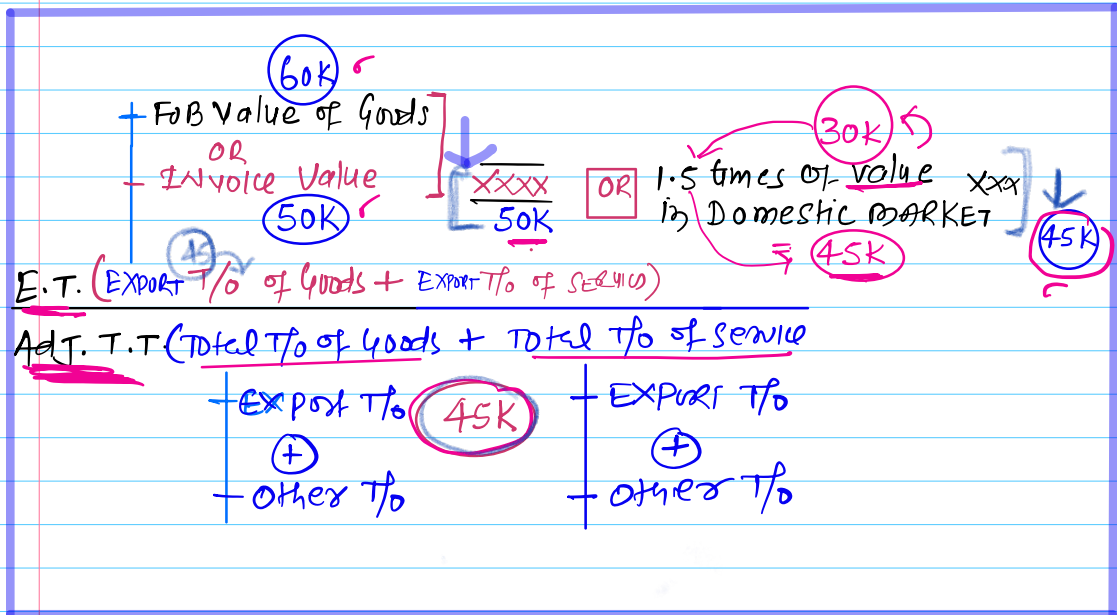 60K
FOB Value of Goods
OR
INVOICE Value
50K
XXXX
50K
OR
30K
1.5 times of value XXX
in DOMESTIC MARKET
45K
45K
45
E.T. (EXPORT T/O of Goods + EXPORT T/O of SERVICES)
Adj. T.T. (Total T/O of Goods + Total T/O of service
Export T/O 45K
EXPORT T/O
+
+
Other T/O
Other T/O